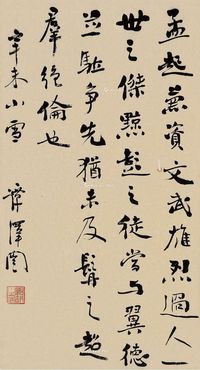 孟起兼資文武雄烈過人一
世之傑黥彭之徒當与翼德
並驅爭先猶未及髯之超
羣絕倫也
辛未小雪
譚澤闿